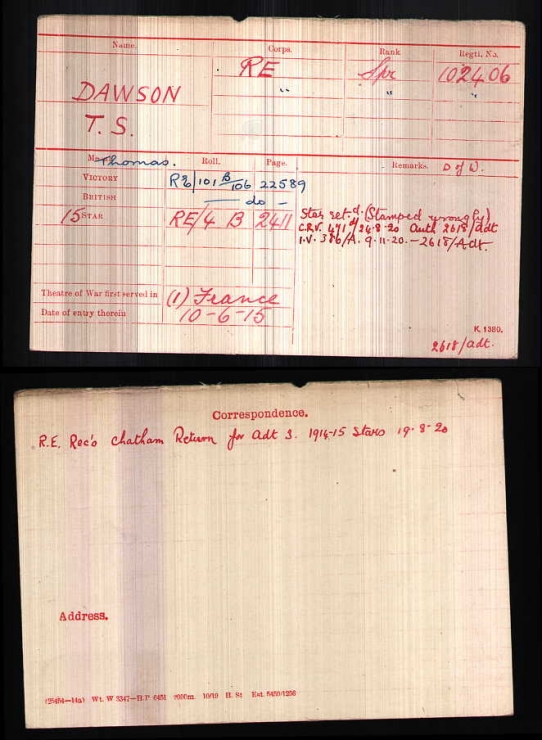 Name. Corps. Rank Regtl. No.
DAWSON RE Spr 102406
T. S. " " "
Thomas. Roll. Page. Remarks. D of W.
VICTORY RE/101 B 106 22589
BRITISH — do —
15 STAR RE/4 B 2411 Star ret.d. (Stamped wrongly)
C.R.V. 471 d/24.8.20 Auth 2618/adt
I.V. 386/A. 9.11.20.—2618/Adt.
Theatre of War first served in (1) France
Date of entry therein 10-6-15
K. 1380.
2618/adt.
Correspondence.
R.E. Rec's Chatham Return for Adt 3. 1914-15 Stars 19-8-20
Address.
Wt. W 5347— 10/19 H. St Est. 5400/1256